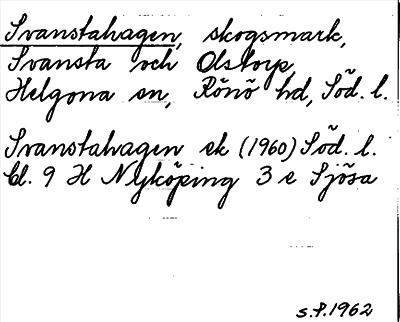 Svanstahagen, skogsmark,
Svansta och Olstorp,
Helgona sn, Rönö hd, Söd. l.
Svanstahagen ek (1960) Söd. l.
bl. 9 H Nyköping 3 e Sjösa
s.P.1962